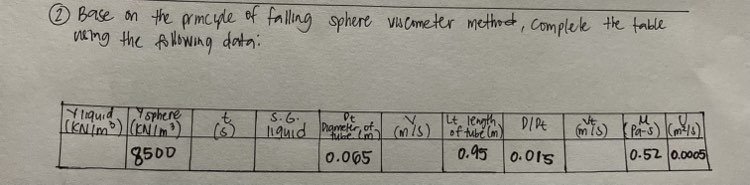 ② Base on the principle of falling sphere viscometer method, complete the table
using the following data:
γ liquid (KN/m³) γ sphere (KN/m³) t (s) S.G. liquid Dt Diameter of tube (m) V (m/s) Lt length of tube (m) D/Dt Vt (m/s) μ (Pa-s) ν (m²/s)
8500 0.065 0.95 0.015 0.52 0.0005